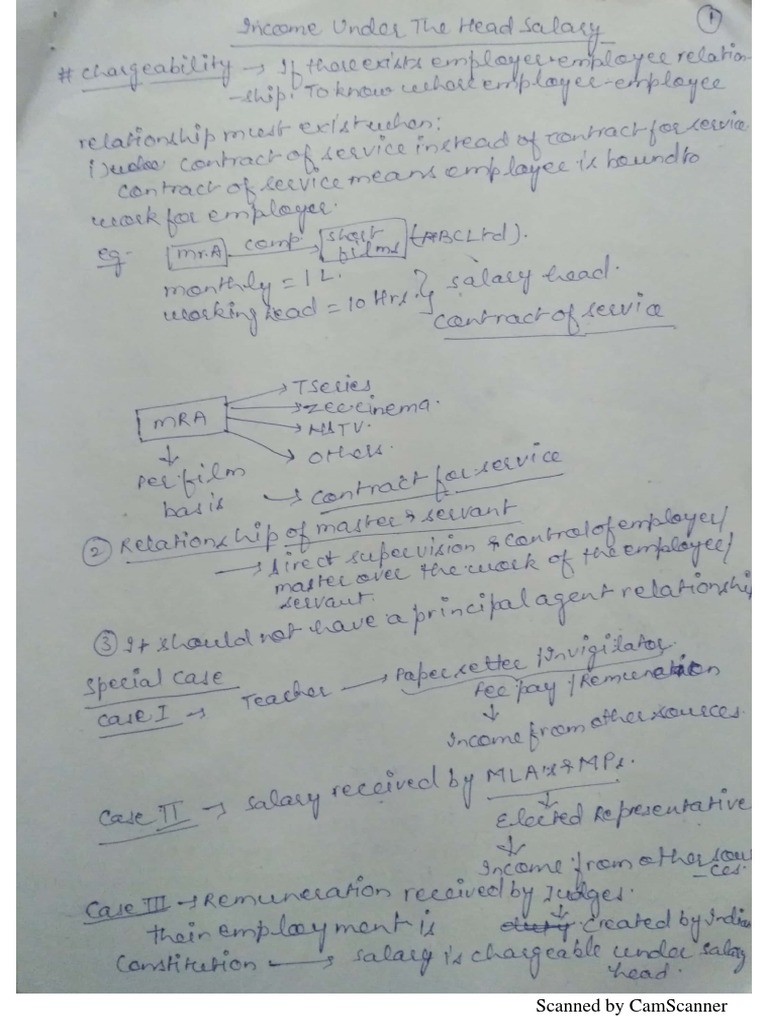 ①
Income Under The Head Salary
# Chargeability → If there exists employer-employee relation
-ship. To know whose employer-employee
relationship must exist when:
i) under contract of service instead of contract for service
contract of service means employee is bound to
work for employer.
eg- Mr.A comp. → Short films (ABC Ltd).
monthly = 1 L. } salary head.
working head = 10 Hrs.
Contract of service
MRA → T Series
→ Zee cinema.
→ NDTV.
→ Others.
↓
Per film
basis → Contract for service
② Relationship of master & servant
→ direct supervision & control of employer/
master over the work of the employee/
servant.
③ It should not have a principal agent relationship
Special Case
Case I → Teacher → Paper setter / Invigilator
Fee pay / Remuneration
↓
Income from other sources.
Case II → Salary received by MLA's & MPs.
↓
Elected Representative
↓
Income from other sou
-ces.
Case III → Remuneration received by Judges.
↓
their employment is created by India
Constitution → salary is chargeable under salary
head.
Scanned by CamScanner